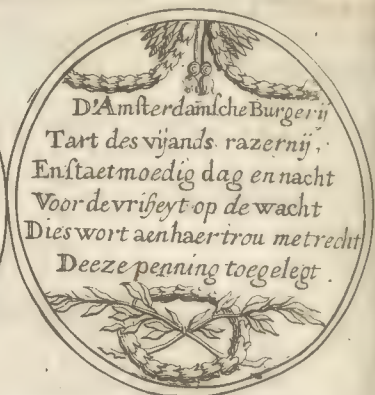 D'Amsterdamsche Burgerij
Tart des vijands razernij,
En staet moedig dag en nacht
Voor de vriheyt op de wacht
Dies wort aen haer trou met recht
Deeze penning toegelegt.